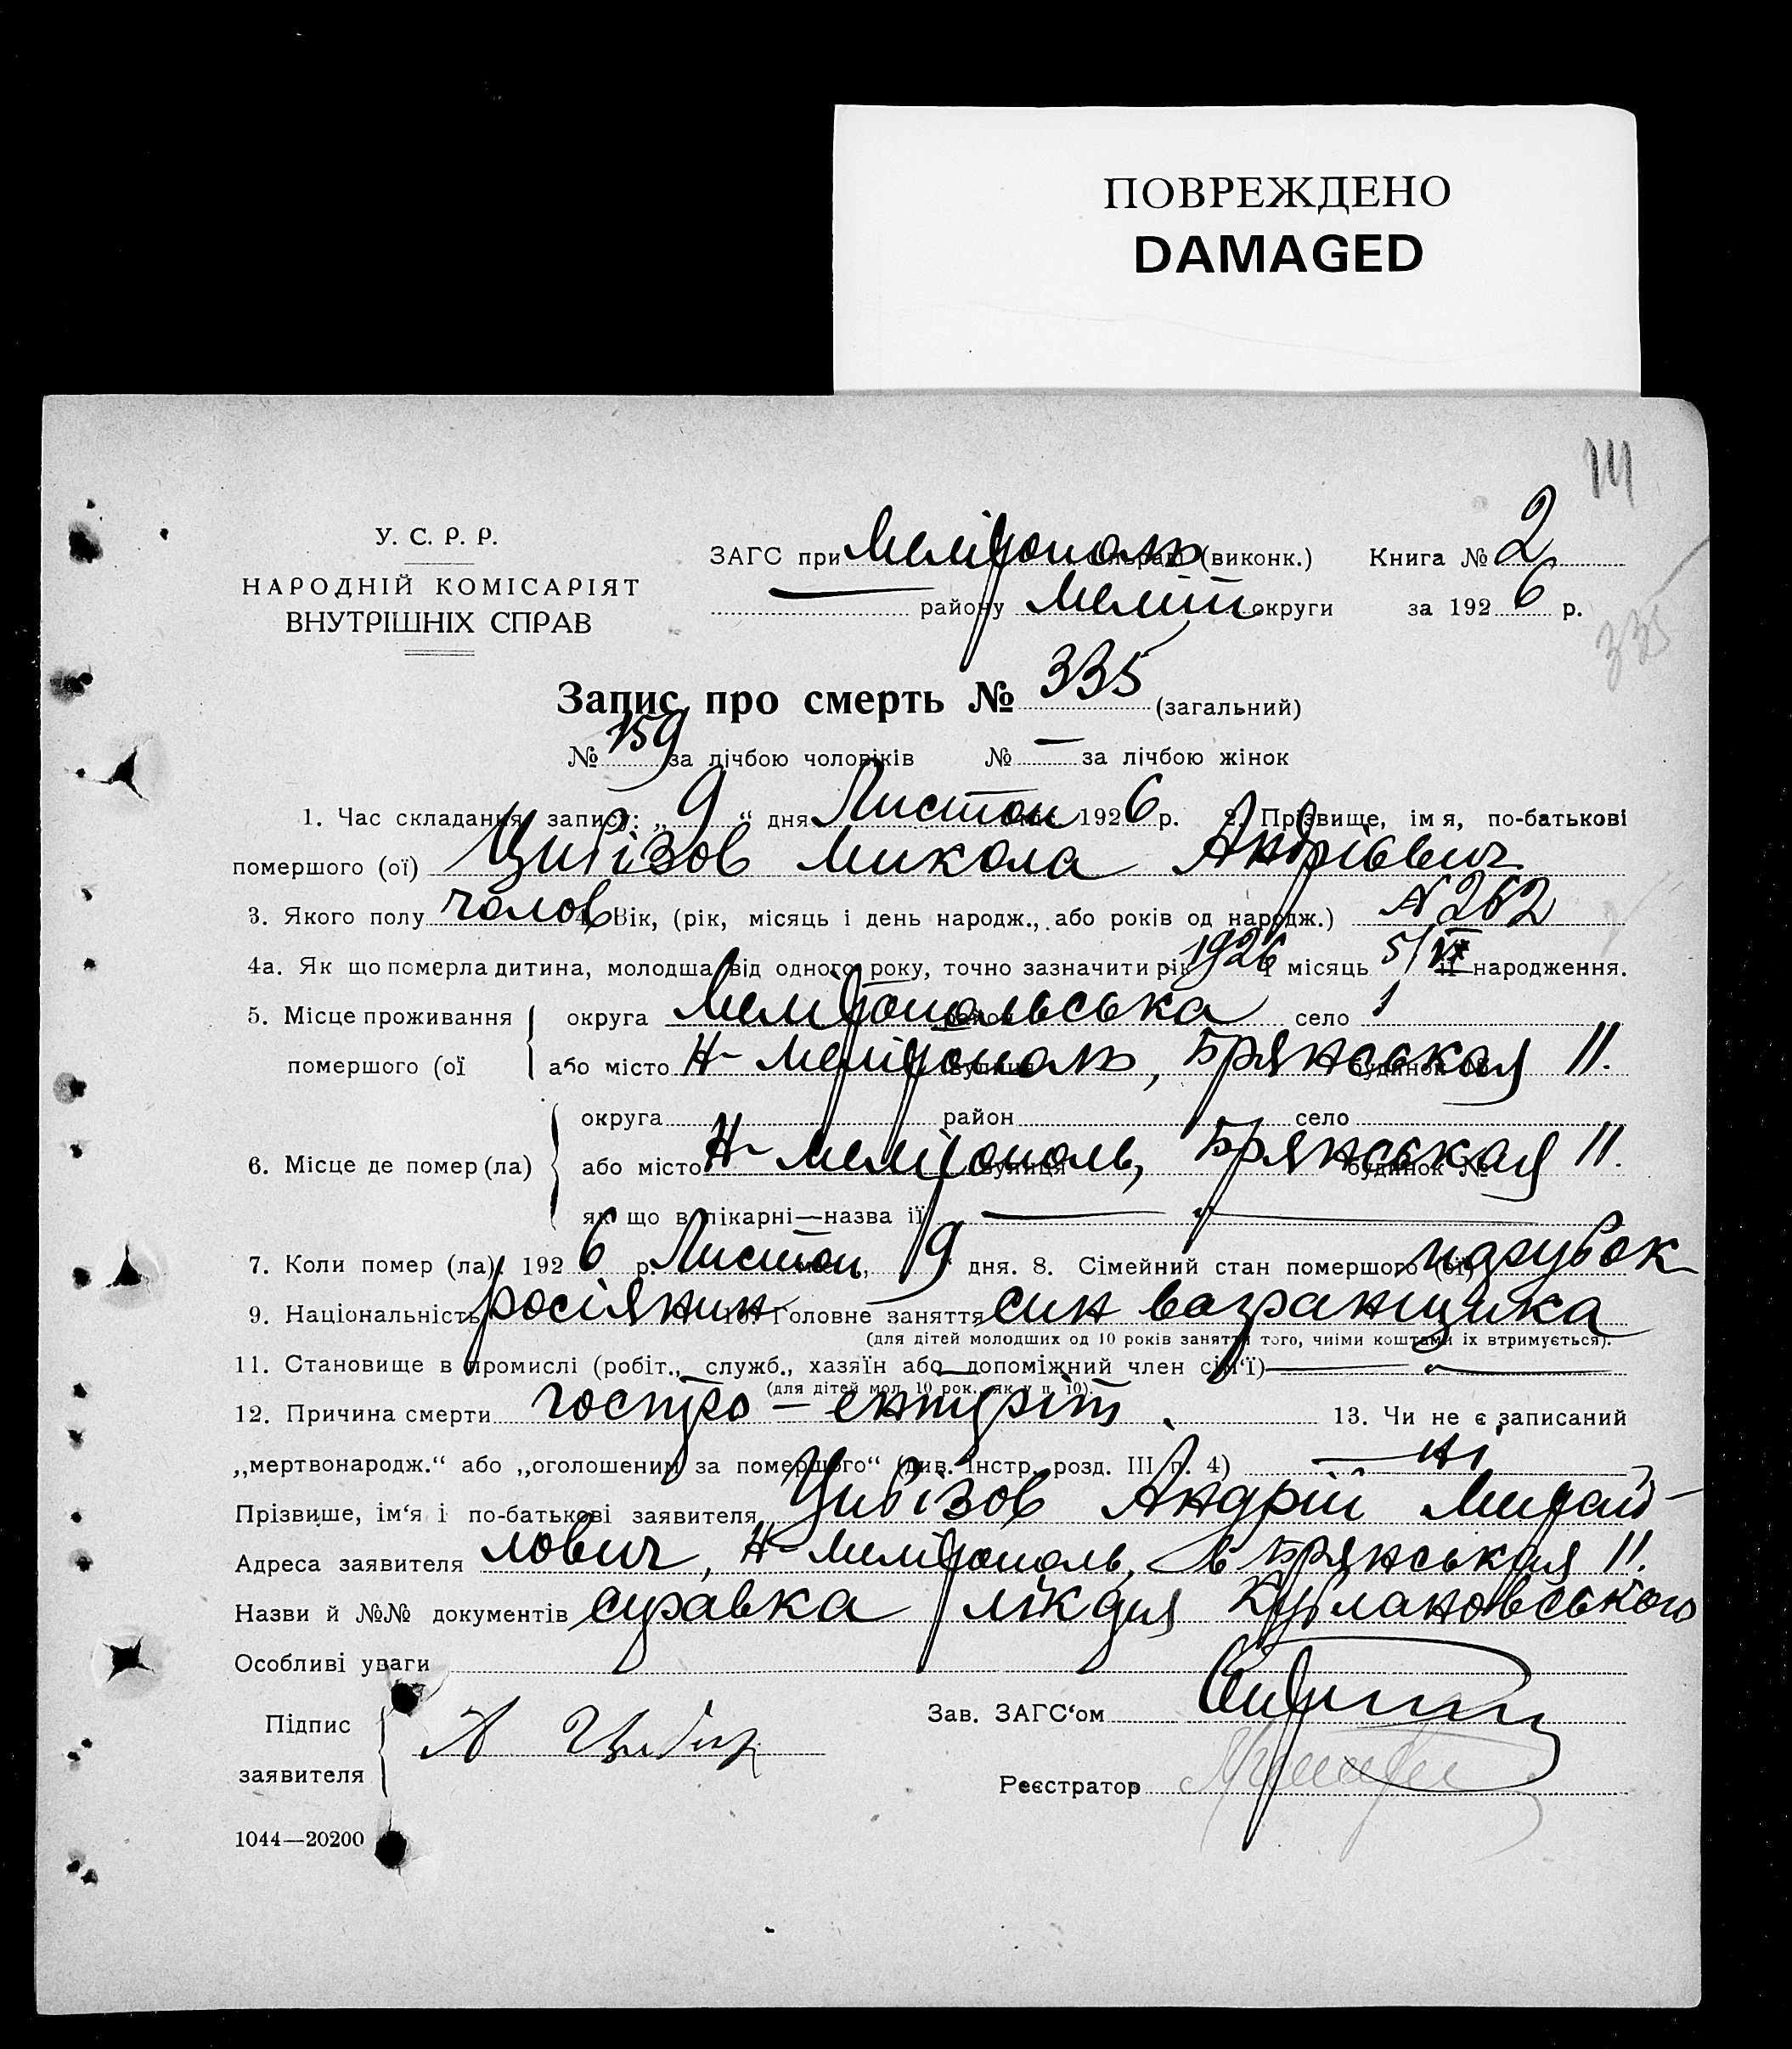 ПОВРЕЖДЕНО
DAMAGED
111
У. С. Р. Р.
НАРОДНІЙ КОМІСАРІЯТ
ВНУТРІШНІХ СПРАВ
ЗАГС при Мелітополь сільраді (виконк.) Книга № 2
— району Меліт округи за 1926 р.
335
Запис про смерть № 335 (загальний)
№ 159 за лічбою чоловіків № — за лічбою жінок
1. Час складання запису: „ 9 “ дня Листоп 1926 р. 2. Прізвище, імя, по-батькові
помершого (ої) Цибізов Микола Андрієвич
3. Якого полу чолов 4. Вік, (рік, місяць і день народж., або років од народж.) N 262
4а. Як що померла дитина, молодша від одного року, точно зазначити рік 1926 і місяць 5/VI її народження.
5. Місце проживання округа Мелітопольська район село
помершого (ої або місто Н-Мелітополь, вулиця Брянськая будинок № 11.
округа район село
6. Місце де помер (ла) або місто Н-Мелітополь, вулиця Брянськая будинок № 11.
як що в лікарні—назва її — „ —
7. Коли помер (ла) 1926 р. Листоп міс., 9 дня. 8. Сімейний стан помершого (ої) парубок
9. Національність росіянин 10. Головне заняття син вагранщика
(для дітей молодших од 10 років заняття того, чиіми коштами їх втримується).
11. Становище в промислі (робіт., служб., хазяїн або допоміжний член сім‘ї) — „ —
(для дітей мол. 10 рок., як у п. 10).
12. Причина смерти гостро — ентеріт. 13. Чи не є записаний
„мертвонародж.“ або „оголошеним за помершого“ (див. інстр. розд. III п. 4) — ні
Прізвише, ім‘я і по-батькові заявителя Цибізов Андрій Михай-
Адреса заявителя лович, Н-Мелітополь, в Брянськая 11.
Назви й №№ документів справка лікаря Кублановського
Особливі уваги
Підпис
заявителя
А Цибиз
Зав. ЗАГС‘ом
Реєстратор
1044—20200